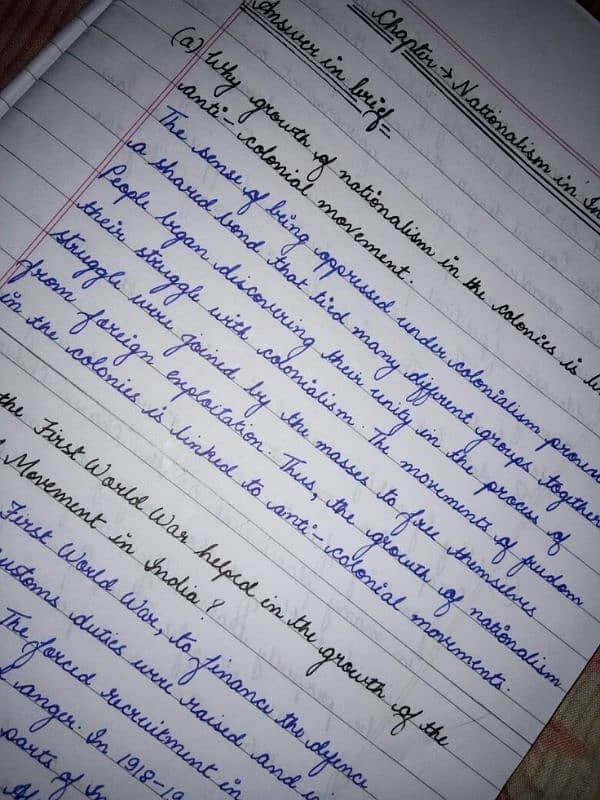 Chapter → Nationalism in
Answer in brief =
(a) Why growth of nationalism in the colonies is
anti-colonial movement.
The sense of being oppressed under colonialism
a shared bond that tied many different groups together
People began discovering their unity in the process of
their struggle with colonialism. The movements of freedom
struggle were joined by the masses to free themselves
from foreign exploitation. Thus, the growth of nationalism
in the colonies is linked to anti-colonial movements.
the First World War helped in the growth of the
Movement in India?
First World War, to finance the defence
customs duties were raised and
The forced recruitment in
anger. In 1918-19
parts of